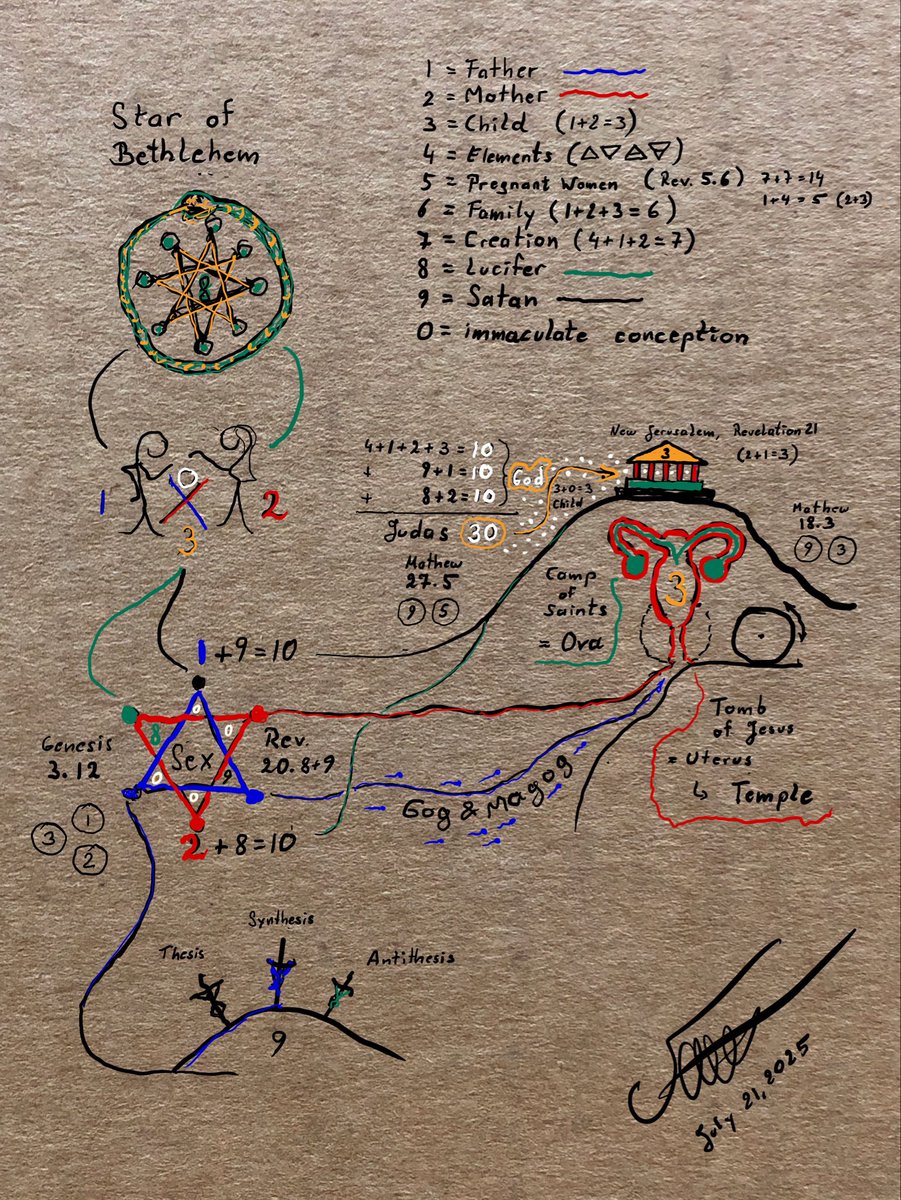 Star of
Bethlehem
1 = Father
2 = Mother
3 = Child (1+2=3)
4 = Elements (△▽△▽)
5 = Pregnant Women (Rev. 5.6) 7+7=14
1+4=5 (2+3)
6 = Family (1+2+3=6)
7 = Creation (4+1+2=7)
8 = Lucifer
9 = Satan
0 = immaculate conception
8
1
0
2
3
4+1+2+3=10
+ 9+1=10
+ 8+2=10
God
Judas 30
3+0=3
Child
Mathew
27.5
9 5
New Jerusalem, Revelation 21
(2+1=3)
3
Mathew
18.3
9 3
3
Camp
of
Saints
= Ova
Tomb
of Jesus
= Uterus
↳ Temple
1+9=10
0
8
0
Sex
0
9
0
Genesis
3.12
Rev.
20.8+9
2+8=10
1
3
2
Gog & Magog
Thesis
Synthesis
Antithesis
9
July 21, 2025